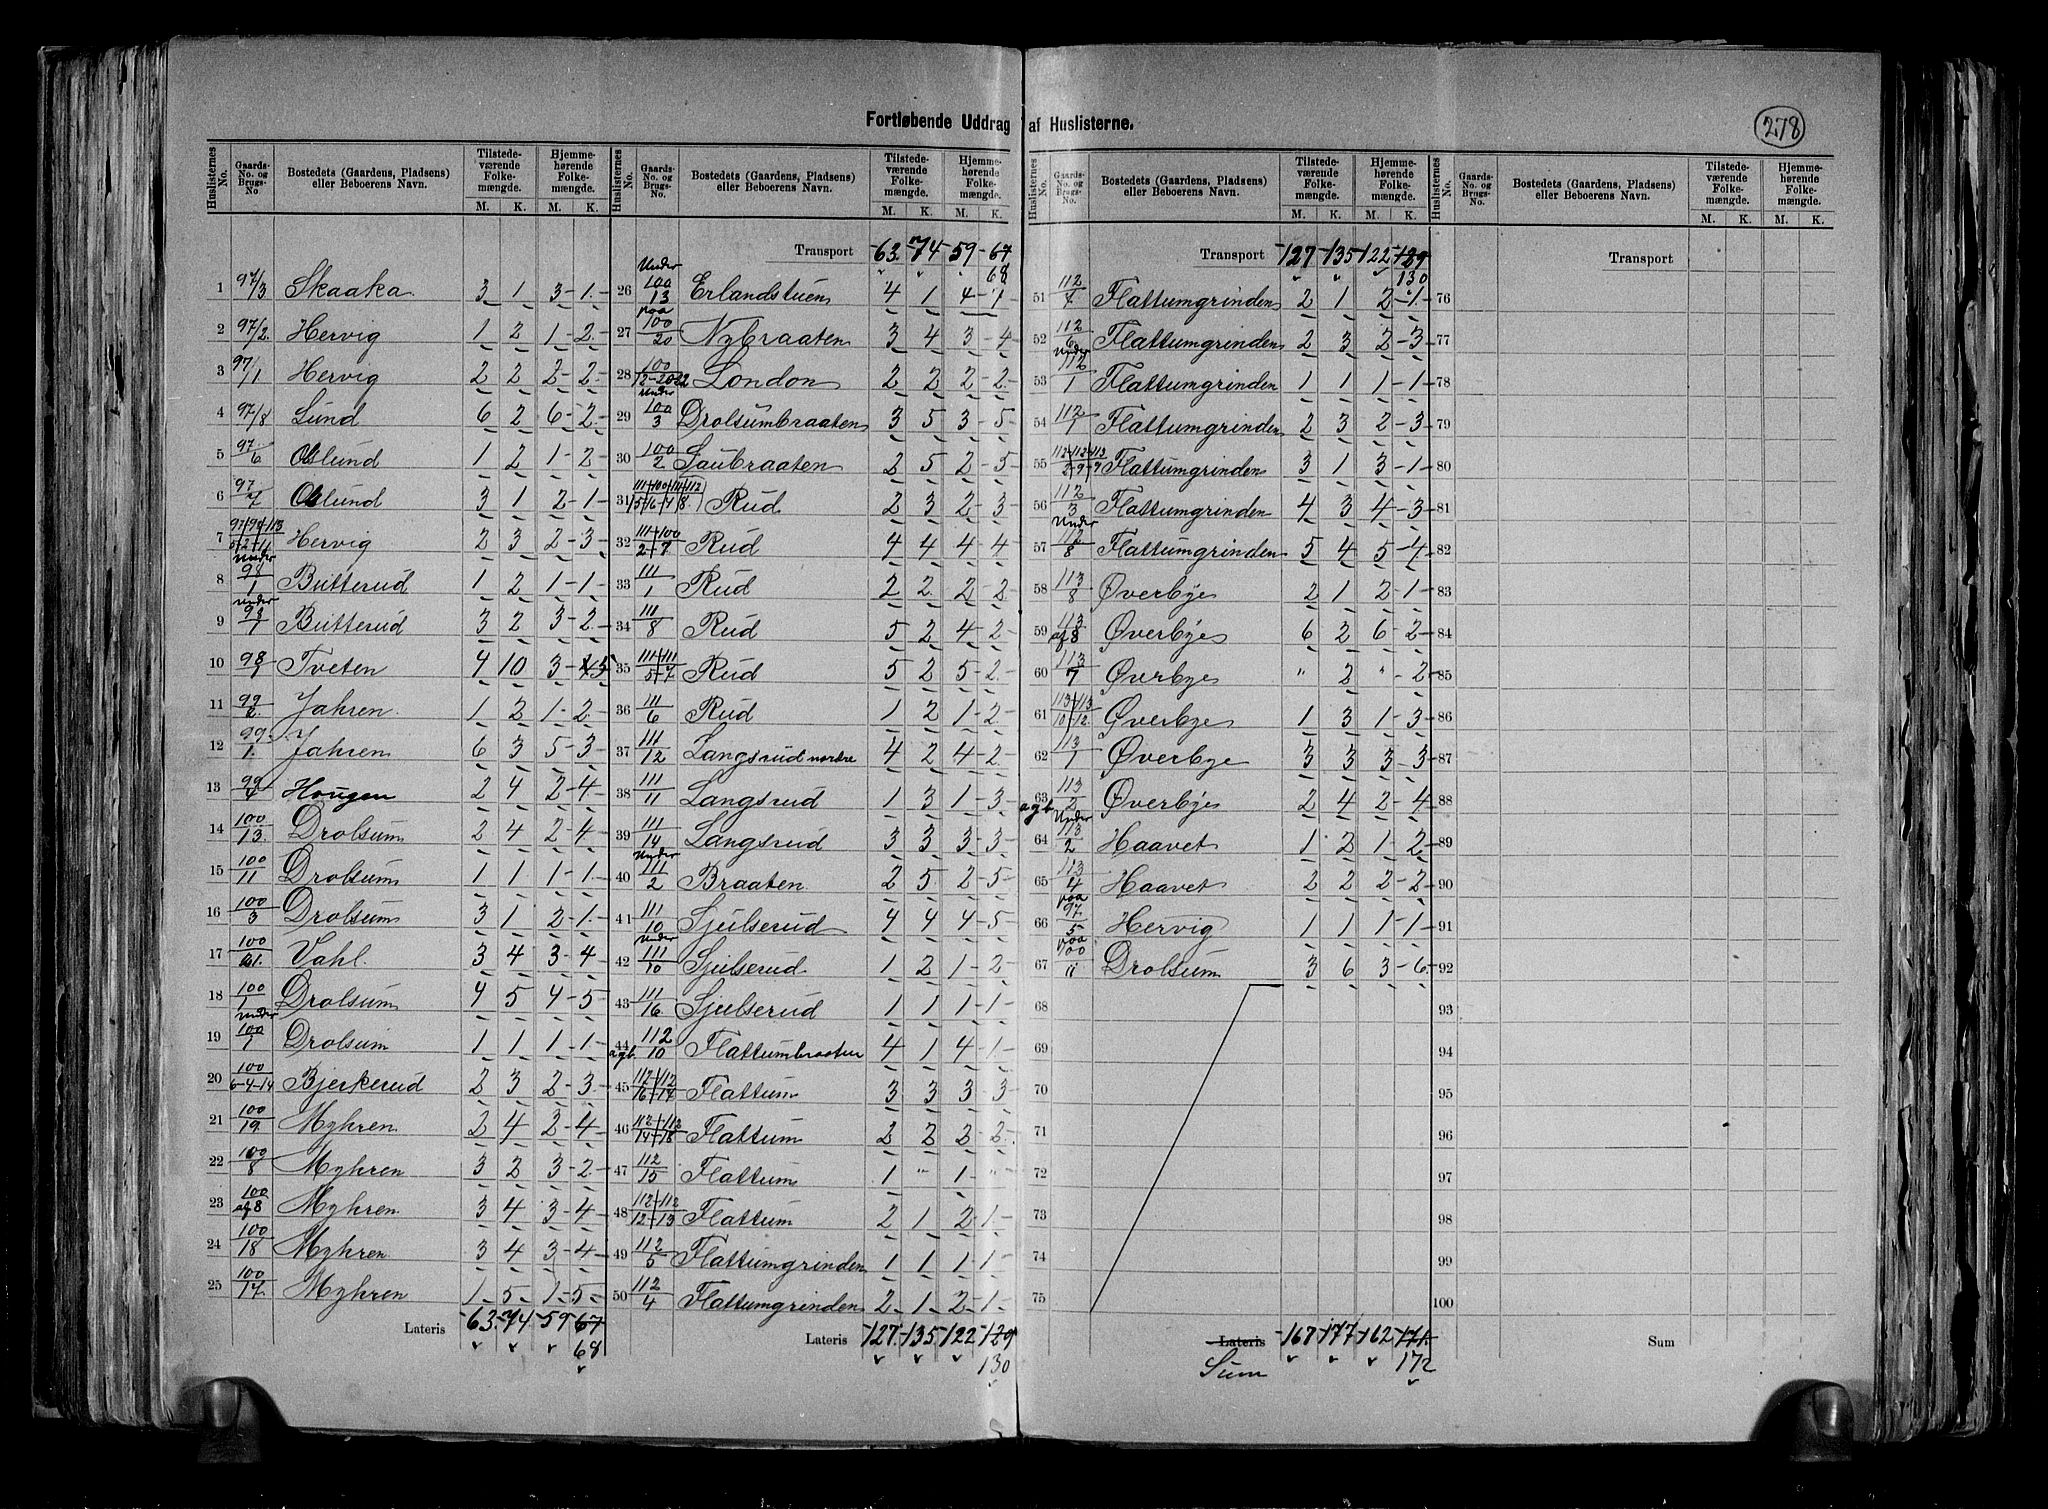 Fortløbende Uddrag af Huslisterne.
278
Huslisternes No. Gaards-No. og Brugs-No Bostedets (Gaardens, Pladsens) eller Beboerens Navn. Tilstedeværende Folkemængde. M. K. Hjemmehørende Folkemængde. M. K.
1 97/3 Skaaka 3 1 3-1
2 97/2 Hervig 1 2 1-2
3 97/1 Hervig 2 2 2-2
4 97/8 Lund 6 2 6-2
5 97/6 Oslund 1 2 1-2
6 97/7 Oslund 3 1 2-1
7 Hervig 2 3 2-3
8 Under 98/1 Butterud 1 2 1-1
9 Under 98/1 Butterud 3 2 3-2
10 98/1 Tveten 4 10 3-5
11 99/2 Jahren 1 2 1-2
12 99/1 Jahren 6 3 5-3
13 99/4 Hougen 2 4 2-4
14 100/13 Drolsum 2 4 2-4
15 100/11 Drolsum 1 1 1-1
16 100/3 Drolsum 3 1 2-1
17 100/21 Vahl 3 4 3-4
18 100/1 Drolsum 4 5 4-5
19 Under 100/1 Drolsum 1 1 1-1
20 100/6-4-14 Bjerkerud 2 3 2-3
21 100/19 Myhren 2 4 2-4
22 100/8 Myhren 3 2 3-2
23 100/af 8 Myhren 3 4 3-4
24 100/18 Myhren 3 4 3-4
25 100/17 Myhren 1 5 1-5
Lateris 63 74 59 67
68
Huslisternes No. Gaards-No. og Brugs-No. Bostedets (Gaardens, Pladsens) eller Beboerens Navn. Tilstedeværende Folkemængde. M. K. Hjemmehørende Folkemængde. M. K.
Transport 63 74 59 67
68
26 Under 100/13 Erlandstuen 4 1 4-1
27 paa 100/20 Nybraaten 3 4 3-4
28 100/12-20-22 London 2 2 2-2
29 Under 100/3 Drolsumbraaten 3 5 3-5
30 100/2 Saubraaten 2 5 2-5
31 Rud 2 3 2-3
32 111+100/2+9 Rud 4 4 4-4
33 111/1 Rud 2 2 2-2
34 111/8 Rud 5 2 4-2
35 111+111/5+7 Rud 5 2 5-2
36 111/6 Rud 1 2 1-2
37 111/12 Langsrud nordre 4 2 4-2
38 111/11 Langsrud 1 3 1-3
39 111/14 Langsrud 3 3 3-3
40 Under 111/2 Braaten 2 5 2-5
41 111/10 Sjulserud 4 4 4-5
42 Under 111/10 Sjulserud 1 2 1-2
43 111/16 Sjulserud 1 1 1-1
44 agb. 112/10 Flattumbraaten 4 1 4-1
45 112+112/16+17 Flattum 3 3 3-3
46 112+113/14+18 Flattum 2 2 2-2
47 112/15 Flattum 1 " 1 "
48 112-112/12-13 Flattum 2 1 2-1
49 112/5 Flattumgrinden 1 1 1-1
50 112/4 Flattumgrinden 2 1 2-1
Lateris 127 135 122 129
130
Huslisternes No. Gaards-No. og Brugs-No. Bostedets (Gaardens, Pladsens) eller Beboerens Navn. Tilstedeværende Folkemængde. M. K. Hjemmehørende Folkemængde. M. K.
Transport 127 135 122 129
130
51 112/7 Flattumgrinden 2 1 2-1
52 112/6 Flattumgrinden 2 3 2-3
53 Under 112/1 Flattumgrinden 1 1 1-1
54 112/1 Flattumgrinden 2 3 2-3
55 112+112+113/2-9-9 Flattumgrinden 3 1 3-1
56 112/3 Flattumgrinden 4 3 4-3
57 Under 112/8 Flattumgrinden 5 4 5-4
58 113/8 Øverbye 2 1 2-1
59 113/af 8 Øverbye 6 2 6-2
60 113/7 Øverbye " 2 " 2
61 113+113/10+12 Øverbye 1 3 1-3
62 113/1 Øverbye 3 3 3-3
63 agb. 113/2 Øverbye 2 4 2-4
64 Under 113/2 Haavet 1 2 1-2
65 113/4 Haavet 2 2 2-2
66 paa 97/5 Hervig 1 1 1-1
67 paa 100/11 Drolsum 3 6 3-6
68
69
70
71
72
73
74
75
Lateris 167 177 162 171
Sum 172
Huslisternes No. Gaards-No. og Brugs-No. Bostedets (Gaardens, Pladsens) eller Beboerens Navn. Tilstedeværende Folkemængde. M. K. Hjemmehørende Folkemængde. M. K.
Transport
76
77
78
79
80
81
82
83
84
85
86
87
88
89
90
91
92
93
94
95
96
97
98
99
100
Sum